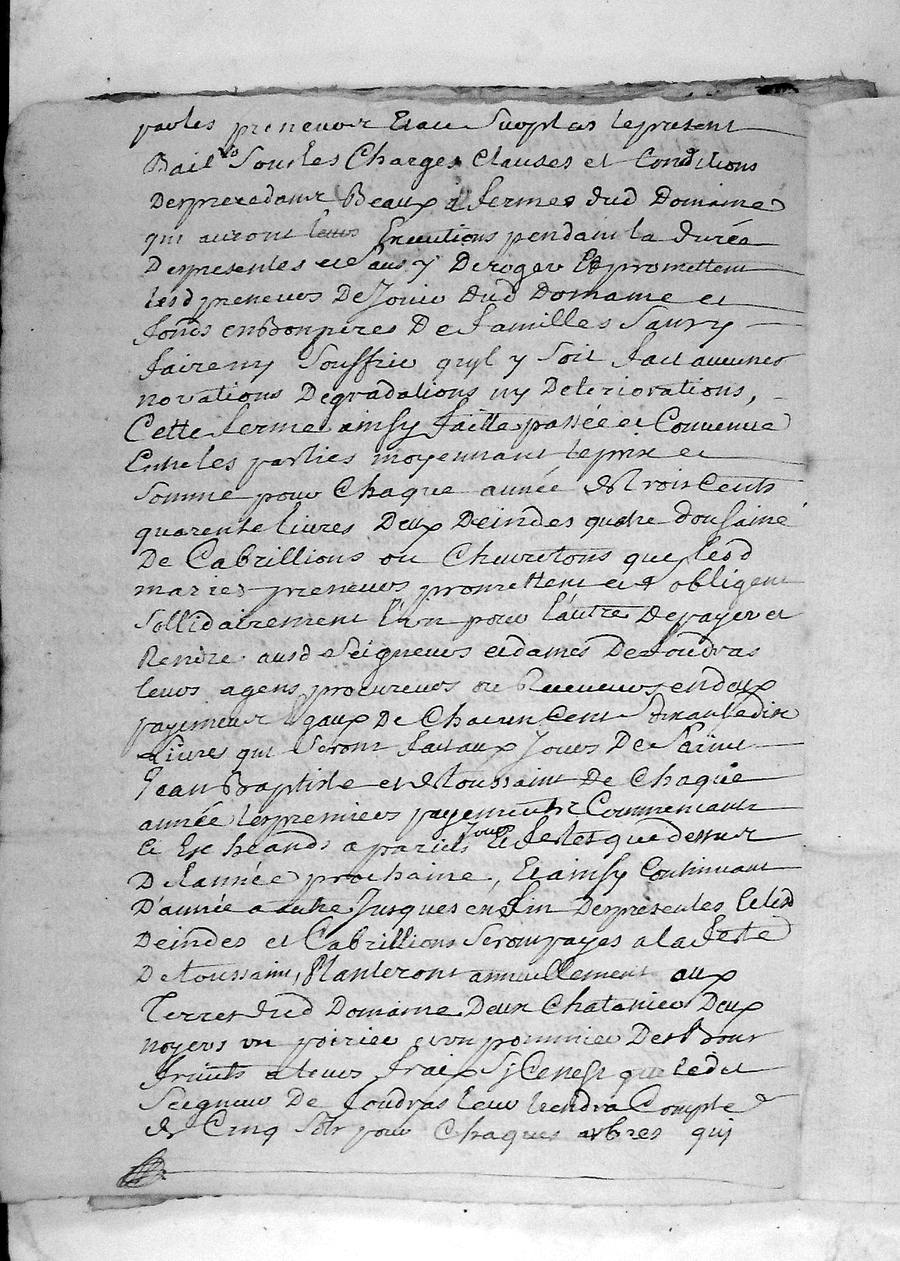 par les preneurs Et au Surplus le present
Bail Sous les Charges Clauses et Conditions
Desprecedants Beaux a fermes dud Domaine
qui auront leurs Executions pendant la durée
Des presentes et Sans y Deroger Et promettent
lesd preneurs De Jouir dud Domaine et
fonds en bon peres De familles Sans y
faire ny Souffrir quyl y Soit fait aucunes
novations Degradations ny Deteriorations,
Cette ferme ainsy faitte passée et Convenue
Entre les parties moyennant le prix et
Somme pour Chaque année de Trois Cents
quarente livres Deux Deindes quatre dousaine
De Cabrillions ou Chevretons que lesd
maries preneurs promettent et s obligent
Sollidairement l'un pour l'autre De payer et
Rendre ausd Seigneurs et dames De foudras
leurs agens procureurs ou Receveurs en deux
payements Egaux De Chacun Cent Soixante dix
Livres qui Seront fait aux Jours De Saint
Jean Baptiste et de toussaint De Chaque
année les premiers payements Commencants
Et Escheands a pariels Jours Et festes que dessus
De l'année prochaine, Et ainsy Continuant
D'année a autre Jusques en fin Des presentes Et lesd
Deindes et Cabrillions Seront payes a la feste
De toussaint, Planteront annuellement aux
Terres dud Domaine Deux Chataniers Deux
noyers un poirier et un pommier Des Bons
fruits a leurs fraix Si Ce nest que ledit
Seigneur De foudras leur tiendra Compte
de Cinq Sols pour Chaques arbres qui